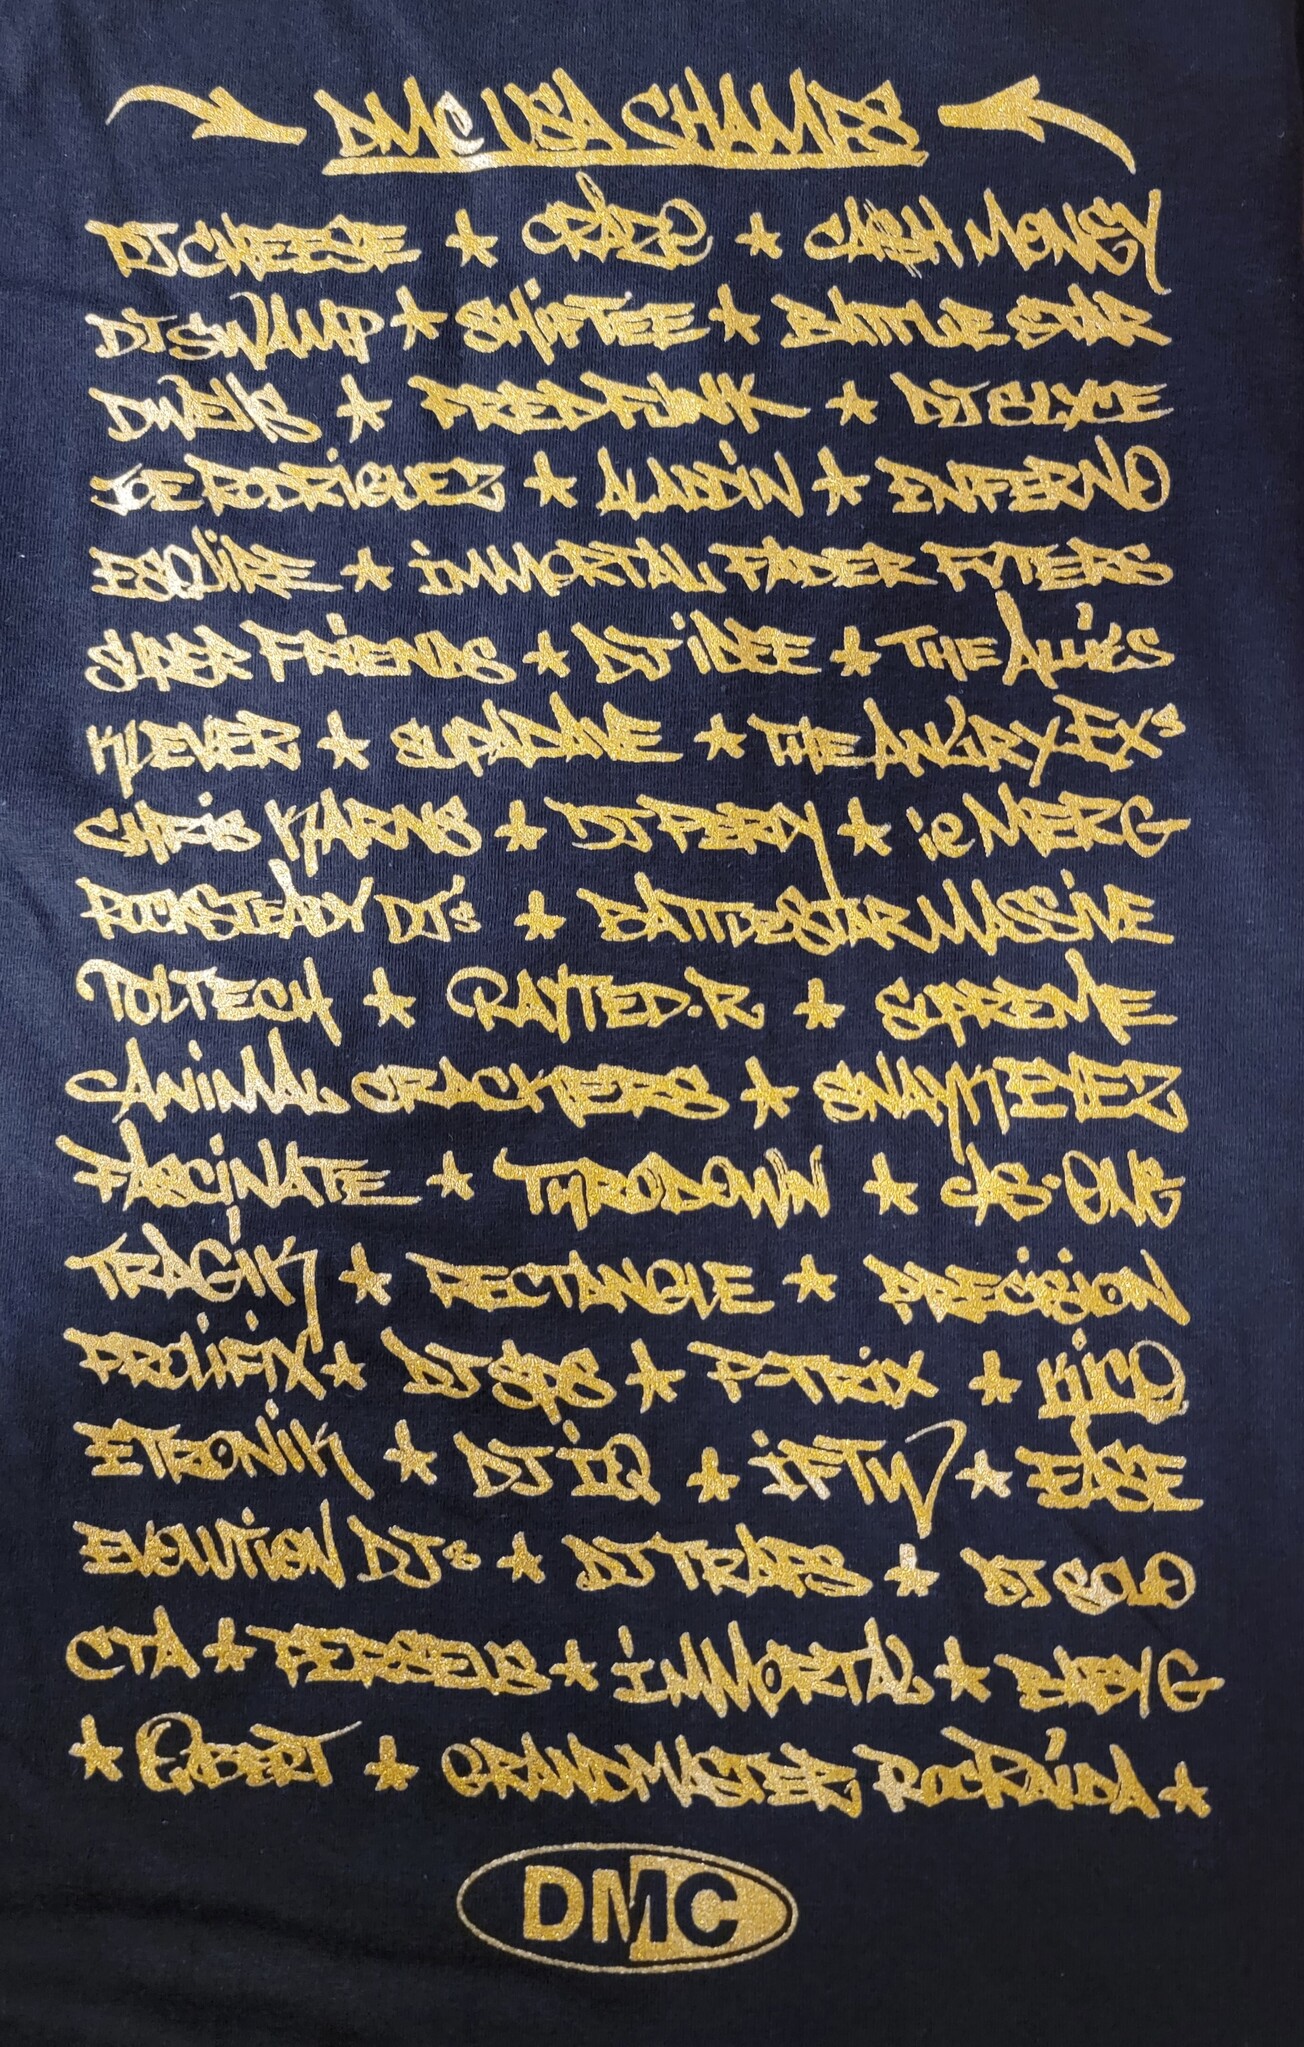 DMC USA CHAMPS
DJ CHEESE * * CA$H MONEY
DJ SWAMP * SHIFTEE * BATTLE STAR
DWELLS * FRED FUNK * DJ SLYCE
JOE RODRIGUEZ * ALADDIN * ENFERNO
ESQUIRE * IMMORTAL FADER FYTERS
SUPER FRIENDS * DJ IDEE * THE ALLIES
KLEVER * SUPADAVE * THE ANGRY EXS
CHRIS KARNS * DJ PERLY * IE MERG
ROCKSTEADY DJ'S * BATTLESTAR MASSIVE
TOLTECH * RAYTED.R * SUPREME
ANIMAL CRACKERS * SNAYK EYEZ
FASCINATE * THRODOWN * AS.ONE
TRAGIK * RECTANGLE * PRECISION
PROLIFIX * DJ SPS * PYTRIX * KICO
ETRONIK * DJ IQ * *
EVOLUTION DJS * DJ TRAPS * DJ SOLO
CTA * PERSEUS * IMMORTAL * BABY G
* QBERT * GRANDMASTER ROC RAIDA *
DMC